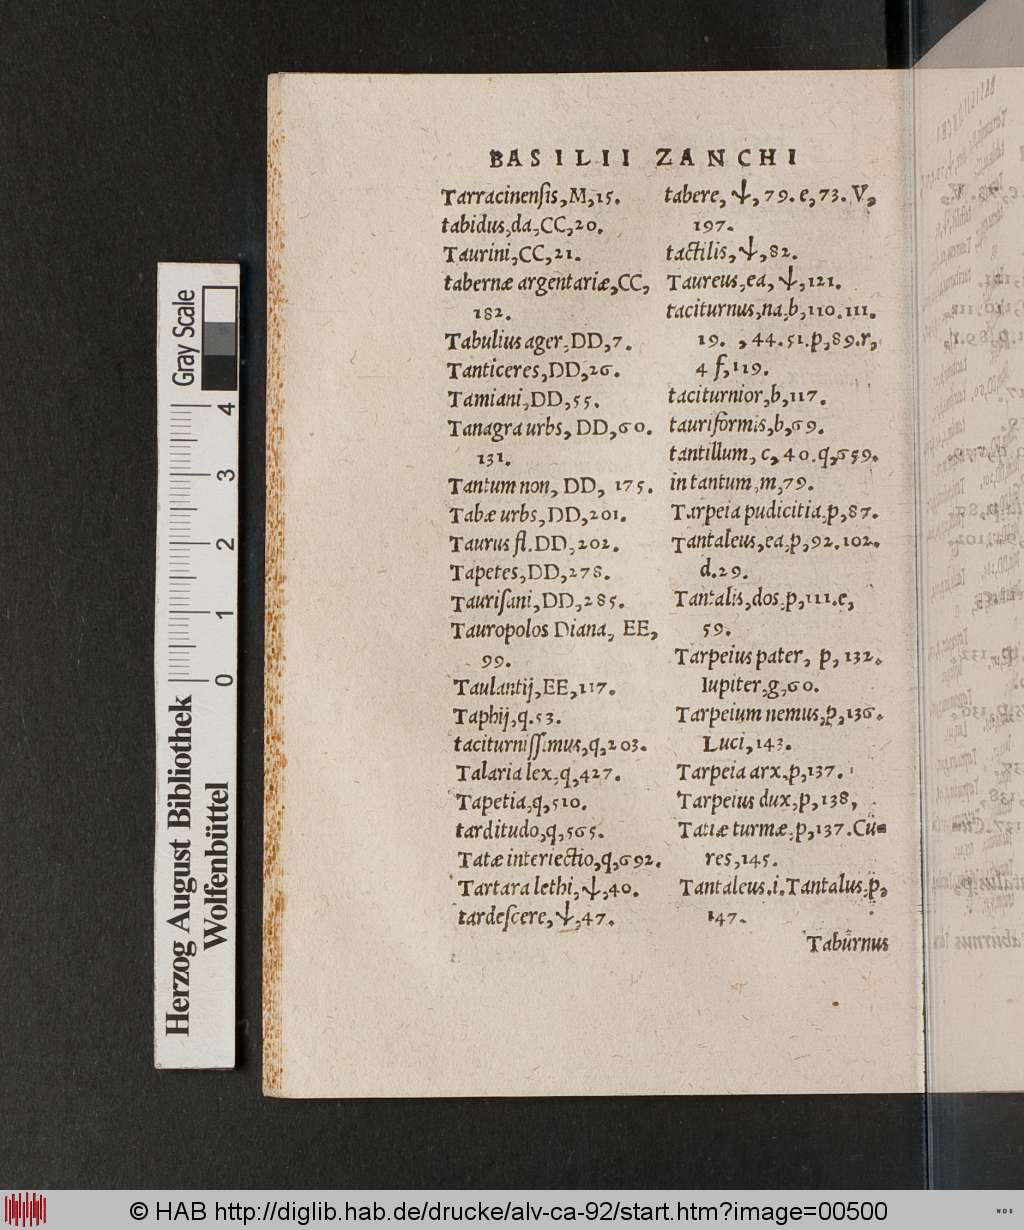 BASILII ZANCHI
Tarracinenſis, M, 15.
tabidus, da, CC, 20.
Taurini, CC, 21.
tabernæ argentariæ, CC,
182.
Tabulius ager, DD, 7.
Tanticeres, DD, 26.
Tamiani, DD, 55.
Tanagra urbs, DD, 60.
131.
Tantum non, DD, 175.
Tabæ urbs, DD, 201.
Taurus fl. DD, 202.
Tapetes, DD, 278.
Tauriſani, DD, 285.
Tauropolos Diana, EE,
99.
Taulantij, EE, 117.
Taphij, q. 53.
taciturniſſimus, q, 203.
Talaria lex, q, 427.
Tapetia, q, 510.
tarditudo, q, 565.
Tatæ interiectio, q, 692.
Tartara lethi, ψ, 40.
tardeſcere, ψ, 47.
tabere, ψ, 79. e, 73. V,
197.
tactilis, ψ, 82.
Taureus, ea, ψ, 121.
taciturnus, na, b, 110. 111.
19. , 44. 51. p, 89. r,
4 ſ, 119.
taciturnior, b, 117.
tauriformis, b, 69.
tantillum, c, 40. q, 659.
in tantum, m, 79.
Tarpeia pudicitia, p, 87.
Tantaleus, ea, p, 92. 102.
d. 29.
Tantalis, dos, p, 111. e,
59.
Tarpeius pater, p, 132.
Iupiter, g, 60.
Tarpeium nemus, p, 136.
Luci, 143.
Tarpeia arx, p, 137.
Tarpeius dux, p, 138,
Tatiæ turmæ, p, 137. Cu=
res, 145.
Tantaleus. i. Tantalus, p,
147.
Taburnus
Gray Scale
0 1 2 3 4
Herzog August Bibliothek
Wolfenbüttel
© HAB http://diglib.hab.de/drucke/alv-ca-92/start.htm?image=00500